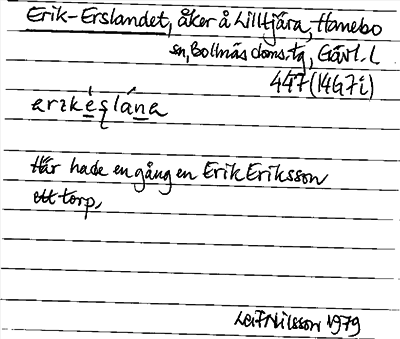 Erik-Erslandet, åker å Lilltjära, Hanebo
sn, Bollnäs doms.tg, Gävl. l
447 (14G7i)
arɪkéslána
Här hade en gång en Erik Eriksson
ett torp.
Leif Nilsson 1979